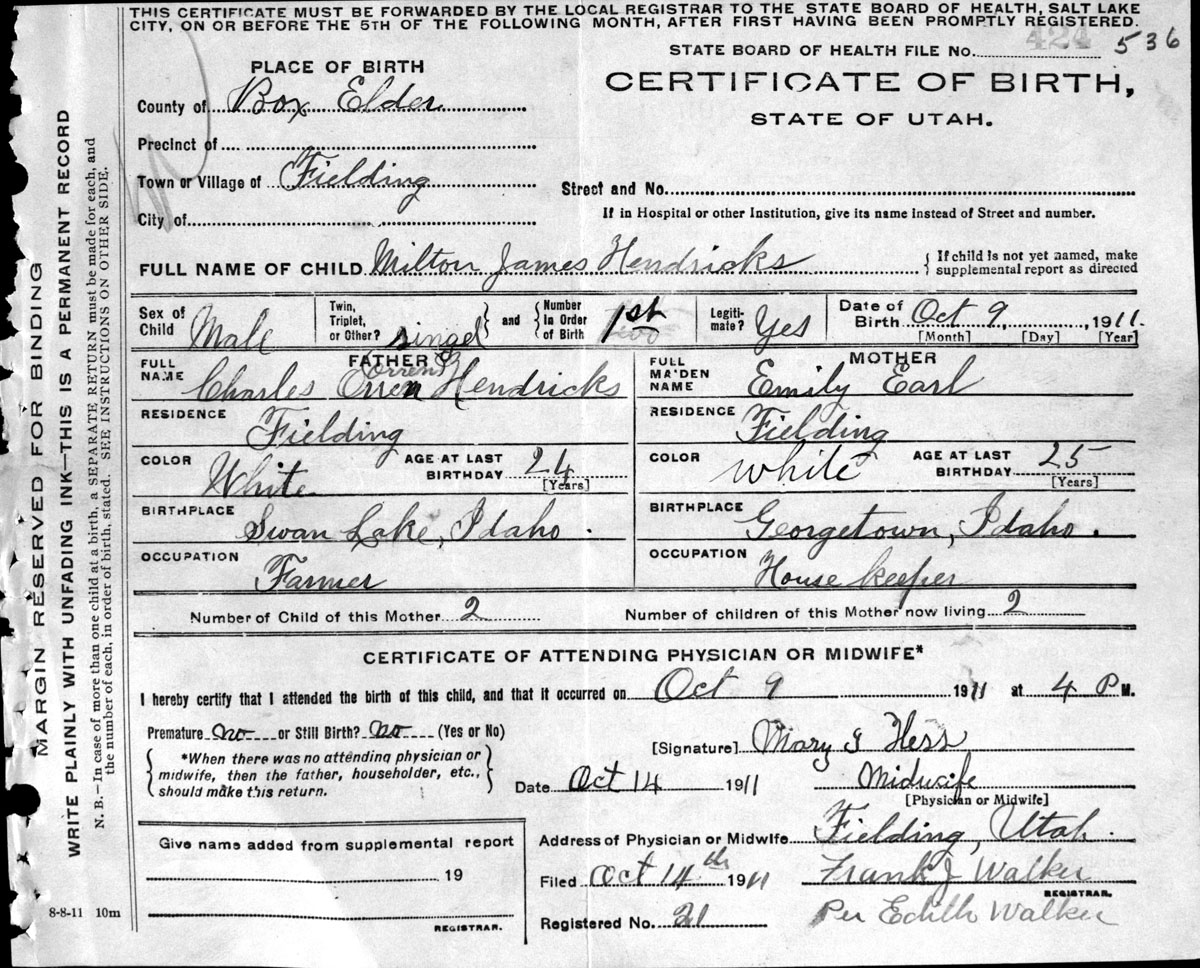 THIS CERTIFICATE MUST BE FORWARDED BY THE LOCAL REGISTRAR TO THE STATE BOARD OF HEALTH, SALT LAKE
CITY, ON OR BEFORE THE 5TH OF THE FOLLOWING MONTH, AFTER FIRST HAVING BEEN PROMPTLY REGISTERED.
STATE BOARD OF HEALTH FILE No. 424 536
PLACE OF BIRTH
CERTIFICATE OF BIRTH,
STATE OF UTAH.
County of Box Elder
Precinct of
Town or Village of Fielding
Street and No.
City of
If in Hospital or other Institution, give its name instead of Street and number.
FULL NAME OF CHILD Milton James Hendricks { If child is not yet named, make
supplemental report as directed
Sex of Child Male
Twin, Triplet, or Other? singel } and { Number In Order of Birth 1st
Legitimate? Yes
Date of Birth Oct 9, 1911.
[Month] [Day] [Year]
FATHER
FULL NAME Charles Orren Hendricks
Orren
MOTHER
FULL MAIDEN NAME Emily Earl
RESIDENCE Fielding
RESIDENCE Fielding
COLOR White AGE AT LAST BIRTHDAY 24 [Years]
COLOR White AGE AT LAST BIRTHDAY 25 [Years]
BIRTHPLACE Swan Lake, Idaho.
BIRTHPLACE Georgetown, Idaho.
OCCUPATION Farmer
OCCUPATION House keeper
Number of Child of this Mother 2 Number of children of this Mother now living 2
CERTIFICATE OF ATTENDING PHYSICIAN OR MIDWIFE*
I hereby certify that I attended the birth of this child, and that it occurred on Oct 9 1911 at 4 P M.
Premature no or Still Birth? no (Yes or No)
*When there was no attending physician or
midwife, then the father, householder, etc.,
should make this return.
[Signature] Mary G Hess
Date Oct 14 1911 Midwife
[Physician or Midwife]
Address of Physician or Midwife Fielding, Utah.
Filed Oct 14th 1911 Frank J Walker
REGISTRAR.
Registered No. 21 Per Edith Walker
Give name added from supplemental report
19
REGISTRAR.
8-8-11 10m
MARGIN RESERVED FOR BINDING
WRITE PLAINLY WITH UNFADING INK—THIS IS A PERMANENT RECORD
N. B.—In case of more than one child at a birth, a SEPARATE RETURN must be made for each, and
the number of each, in order of birth, stated. SEE INSTRUCTIONS ON OTHER SIDE.